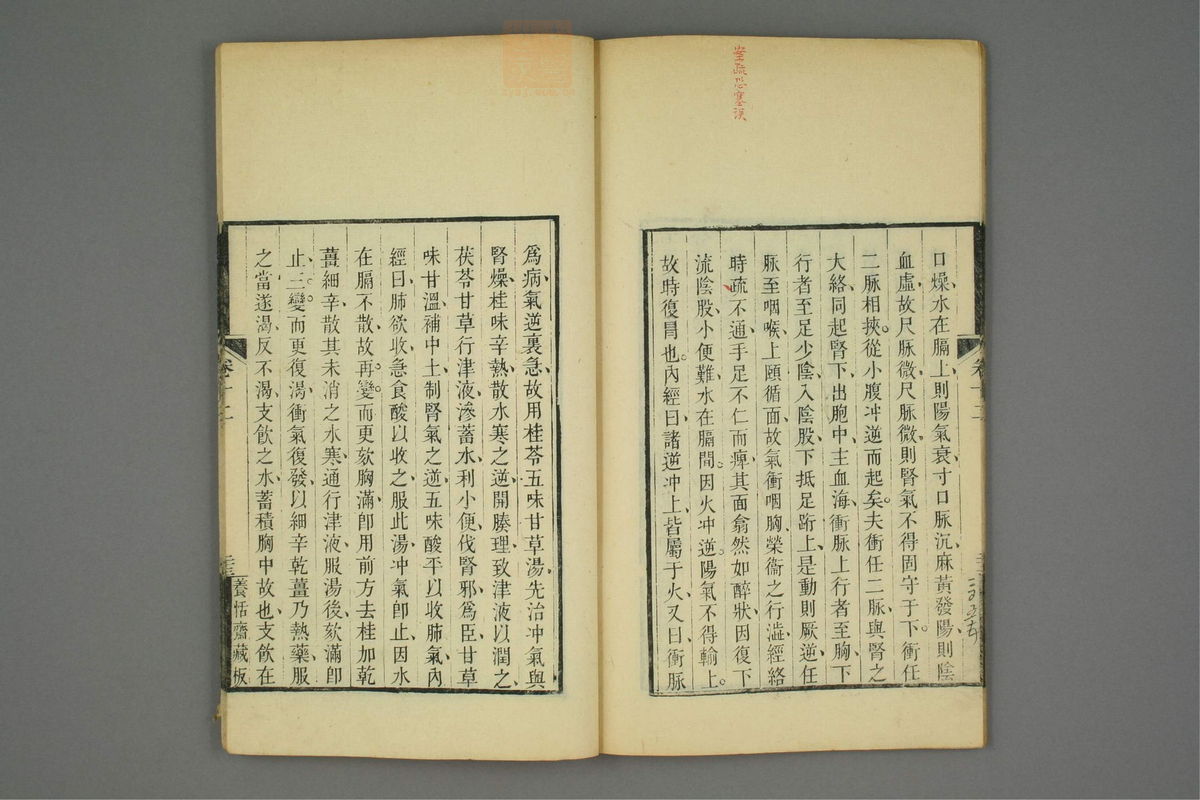 㘴疏恐塞误
口燥水在膈上則陽氣衰寸口脉沉麻黃發陽則陰
血虛故尺脉微尺脉微則腎氣不得固守于下衝任
二脉相挾從小腹冲逆而起矣夫衝任二脉與腎之
大絡同起腎下出胞中主血海衝脉上行者至胸下
行者至足少陰入陰股下抵足跗上是動則厥逆任
脉至咽喉上頤循面故氣衝咽胸榮衞之行澁經絡
時疏不通手足不仁而痺其面翕然如醉狀因復下
流陰股小便難水在膈間因火冲逆陽氣不得輸上
故時復冐也內經曰諸逆冲上皆屬于火又曰衝脉
卷十二
爲病氣逆裏急故用桂苓五味甘草湯先治冲氣與
腎燥桂味辛熱散水寒之逆開腠理致津液以潤之
茯苓甘草行津液滲蓄水利小便伐腎邪爲臣甘草
味甘溫補中土制腎氣之逆五味酸平以收肺氣內
經曰肺欲收急食酸以收之服此湯冲氣卽止因水
在膈不散故再變而更欬胸滿卽用前方去桂加乾
薑細辛散其未消之水寒通行津液服湯後欬滿卽
止三變而更復渴衝氣復發以細辛乾薑乃熱藥服
之當遂渴反不渴支飲之水蓄積胸中故也支飲在
卷十二
養恬齋藏板